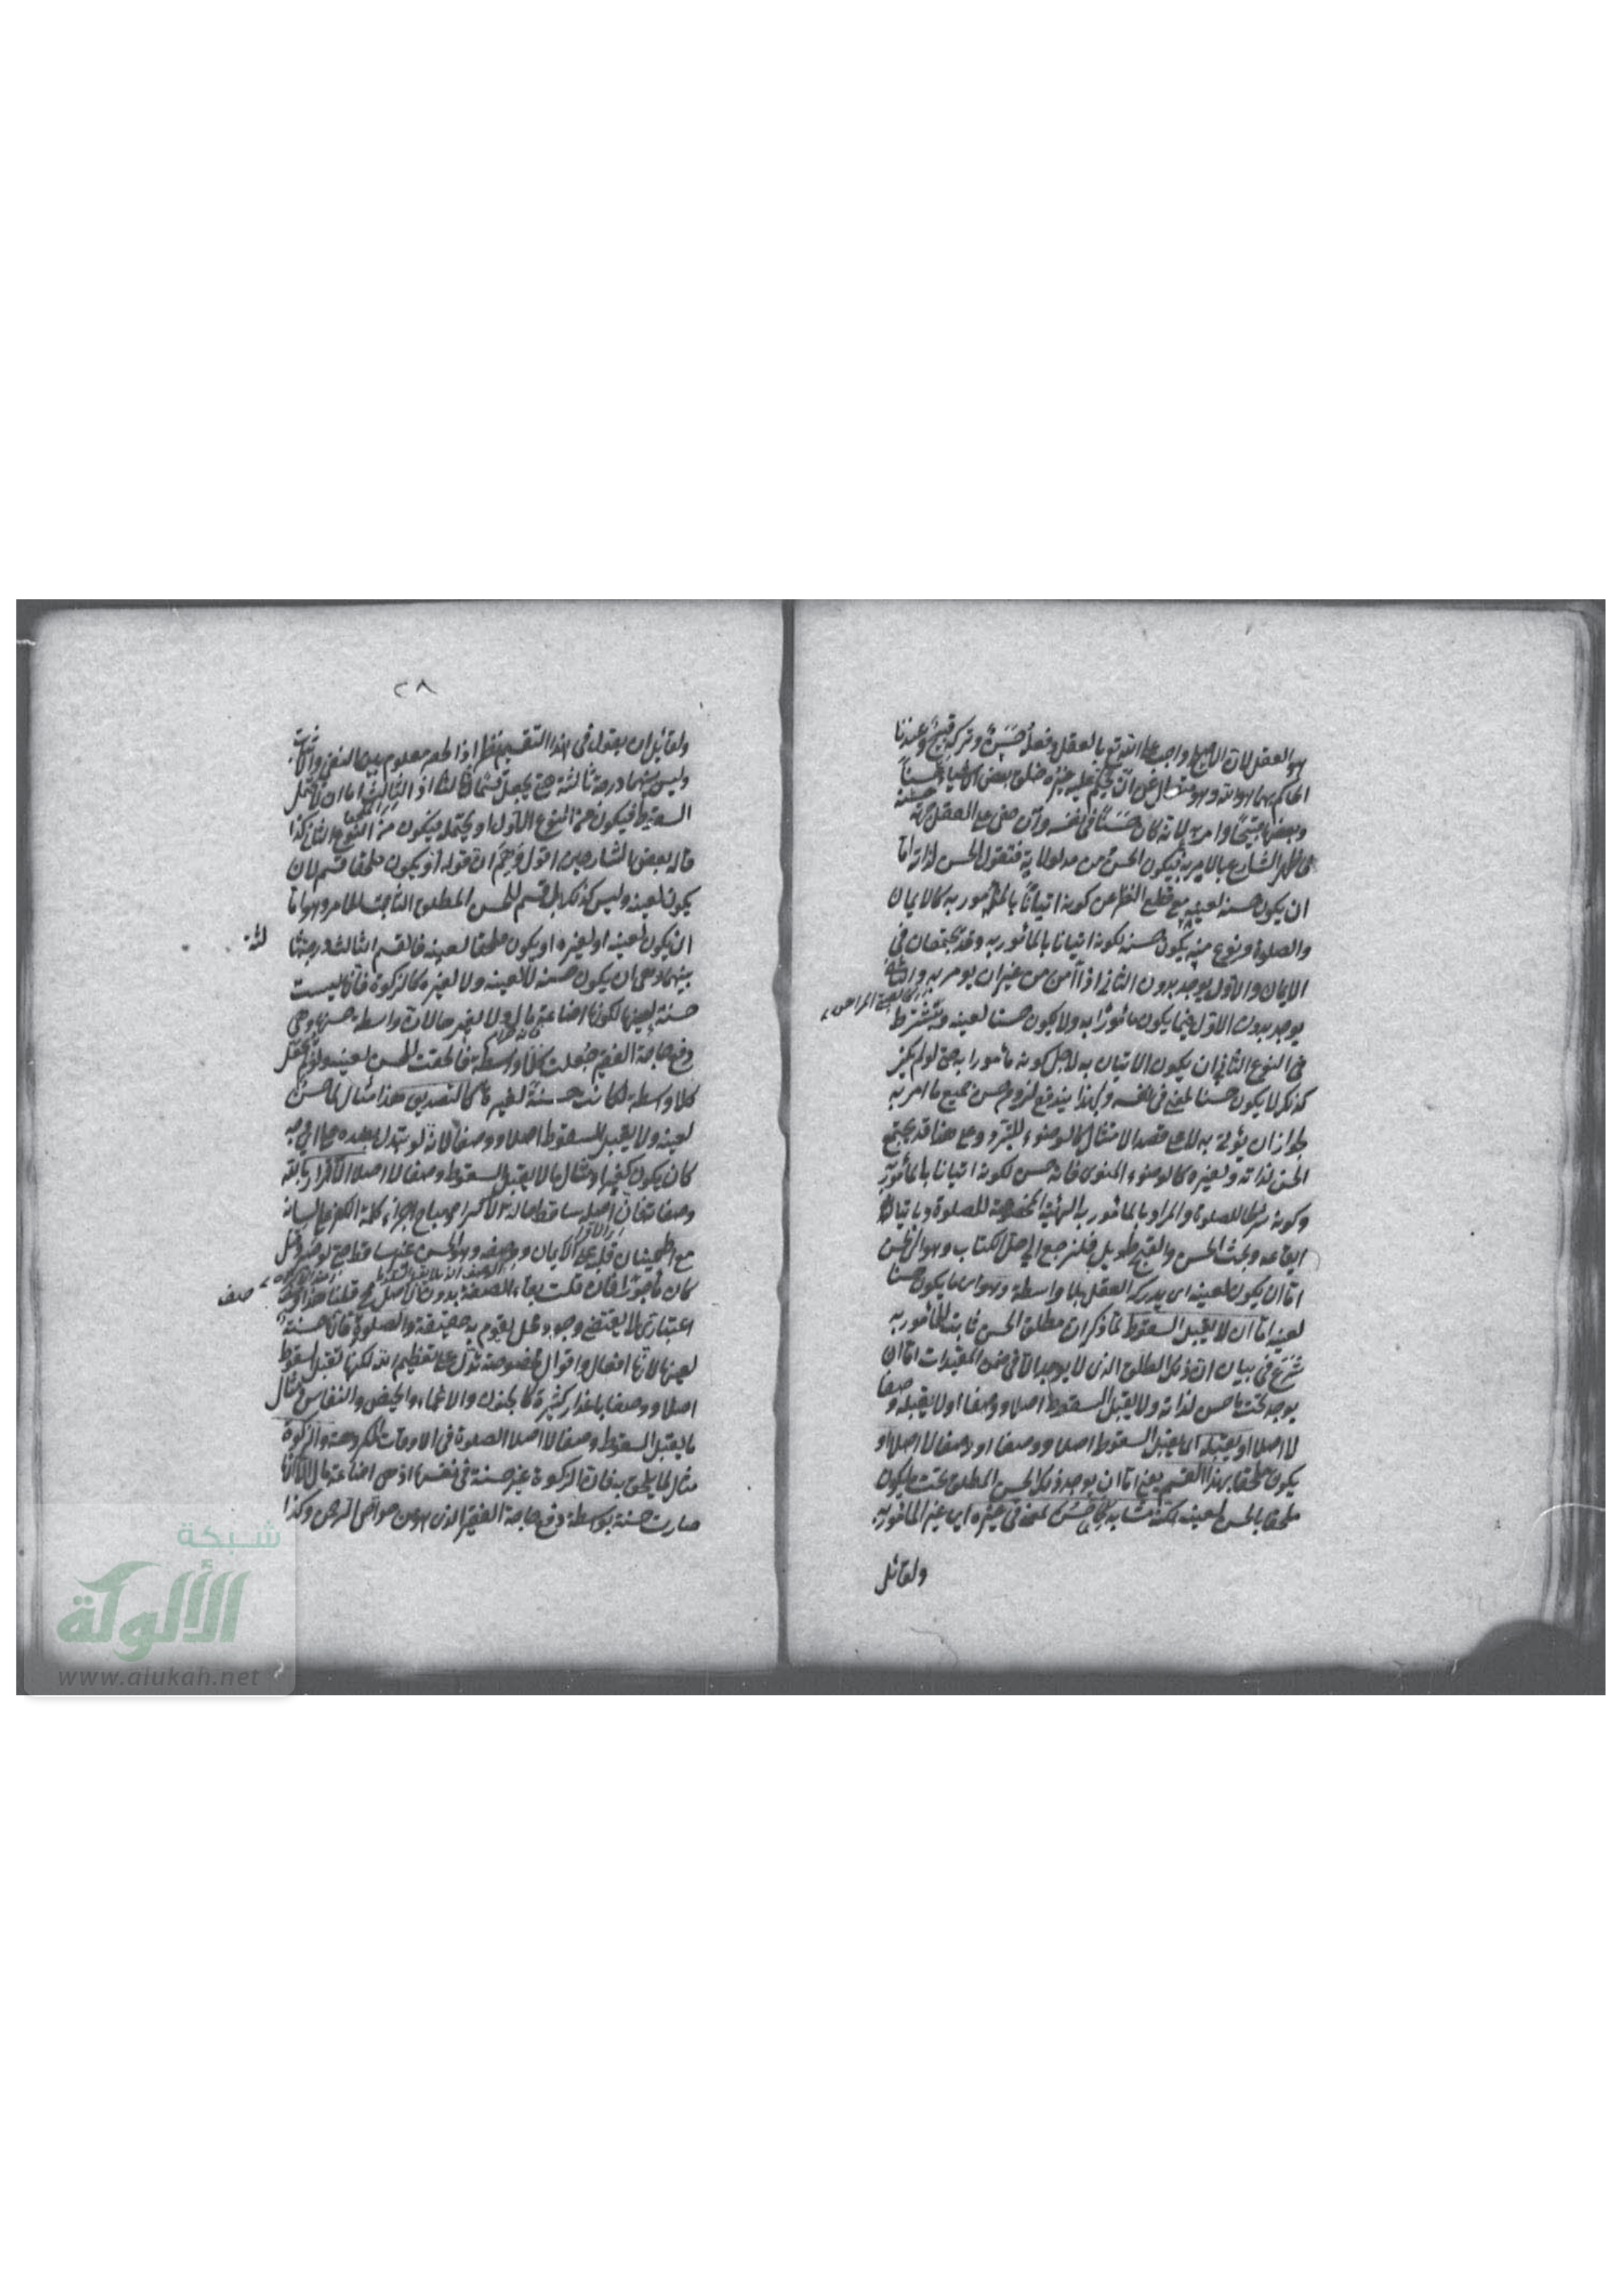 هو العقل لان الاصلح واجب على الله تع بالعقل وفعله حسن وتركه قبيح وعندنا
الحاكم بهما هو الله وهو متعال عن ان يحكم عليه غيره خلق بعض الاشياء حسنا
وبعضها قبيحا وامر به لانه كان حسنا في نفسه وان خفي على العقل جهة حسنه
فاظهر الشارع بالامر به فيكون الحسن من مدلولاته فنقول الحسن لذاته اما
ان يكون حسنه لعينه مع قطع النظر عن كونه اتيانا بالمأمور به كالايمان
والصلوة ونوع منه يكون حسنه لكونه اتيانا بالمأمور به وقد يجتمعان في
الايمان والاول يوجد بدون الثاني اذا آمن من غير ان يؤمر به والثاني
يوجد بدون الاول فيما يكون مأمورا به ولا يكون حسنا لعينه ويشترط
في النوع الثاني ان يكون الاتيان به لاجل كونه مأمورا به حتى لو لم يكن
كذلك لا يكون حسنا لمعنى في نفسه وبهذا يندفع لزوم حسن جميع ما امر به
لجواز ان يؤتى به لا على قصد الامتثال كالوضوء للتبرد وعلى هذا قد يجتمع
الحسن لذاته ولغيره كالوضوء المنوى فانه حسن لكونه اتيانا بالمأمور به
وكونه شرطا للصلوة والمراد بالمأمور به الهيئة المخصوصة للصلوة وباتيانه
ايقاعه وبحث الحسن والقبح طويل فلنرجع الى حل الكتاب وهو اى الحسن
اما ان يكون لعينه اى يدركه العقل بلا واسطة وهو اى ما يكون حسنا
لعينه اما ان لا يقبل السقوط لما ذكر ان مطلق الحسن ثابت للمأمور به
شرع في بيان ان ذلك المطلق الذى لا يوجد الا في ضمن المقيدات اما ان
يوجد تحت ما حسن لذاته ولا يقبل السقوط اصلا ووصفا او لا يقبله وصفا
لا اصلا او يقبله اى يقبل السقوط اصلا ووصفا او وصفا لا اصلا او
يكون ملحقا بهذا القسم يعنى اما ان يوجد ذلك الحسن المطلق تحت ما يكون
ملحقا بالحسن لعينه لكنه مشابه لما حسن لمعنى في غيره اى غير المأمور به
ولقائل
٢٨
ولقائل ان يقول في هذا التقسيم نظر اذ الحصر معلوم بين النفى والاثبات
وليس بينهما درجة ثالثة حتى يجعل قسما ثالثا اذ الثالث اما ان لا يحتمل
السقوط فيكون من النوع الاول او يحتمله فيكون من النوع الثانى كذا
قاله بعض الشارحين اقول زعم ان قوله او يكون ملحقا قسم لان
يكون لعينه وليس كذلك بل قسم للحسن المطلق الثابت للامر وهو اما
ان يكون لعينه او لغيره او يكون ملحقا لعينه فالقسم الثالث درجة
بينهما وهى ان يكون حسنه لا لعينه ولا لغيره كالزكوة فانها ليست
حسنة لعينها لكونها اضاعة مال ولا لغيرها لان واسطة حسنها وهى
دفع حاجة الفقير جعلت كلا واسطة فالحقت للحسن لعينه ولو لم تجعل
كلا واسطة لكانت حسنة لغيره كالتصديق هذا مثال لما حسن
لعينه ولا يقبل السقوط اصلا ووصفا لانه لو تبدل بضده على اى وجه
كان يكون كفرا ومثال ما لا يقبل السقوط وصفا لا اصلا الاقرار بالله
وصفاته فان اصله ساقط حالة الاكراه حتى يباح اجراء كلمة الكفر على لسانه
مع اطمينان قلبه على الايمان ووصفه وهو الحسن غير ساقط حتى لو صبر وقتل
كان مأجورا فان قلت بقاء الصفة بدون الاصل مح قلنا هذا
اعتبارى لا يقتضى وجود محل يقوم به حقيقة والصلوة فانها حسنة
لعينها لانها افعال واقوال مخصوصة تدل على تعظيم الله لكنها تقبل السقوط
اصلا ووصفا باعذار كثيرة كالجنون والاغماء والحيض والنفاس ومثال
ما يقبل السقوط وصفا لا اصلا الصلوة في الاوقات المكروهة والزكوة
مثال لما يلحق به فان الزكوة غير حسنة في نفسها اذ هى اضاعة مال لكنها
صارت حسنة بواسطة دفع حاجة الفقير الذى هو من خواص الرحمن وكذا
شبكة
الألوكة
www.alukah.net